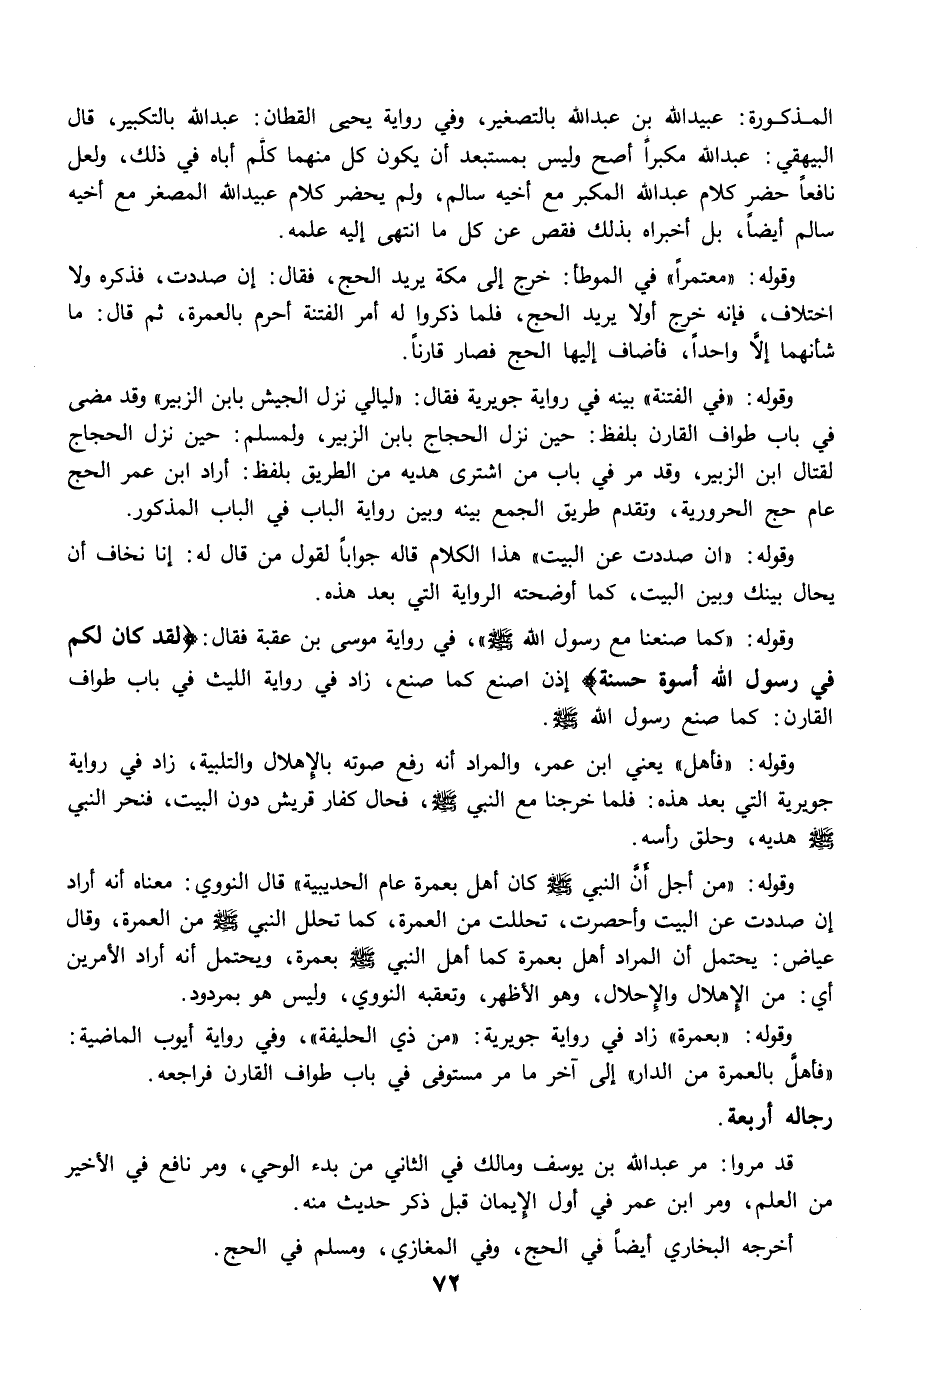 المـذكـورة: عبيدالله بن عبدالله بالتصغير، وفي رواية يحيى القطان: عبدالله بالتكبير، قال
البيهقي: عبدالله مكبراً أصح وليس بمستبعد أن يكون كل منهما كلَّم أباه في ذلك، ولعل
نافعاً حضر كلام عبدالله المكبر مع أخيه سالم، ولم يحضر كلام عبيدالله المصغر مع أخيه
سالم أيضاً، بل أخبراه بذلك فقص عن كل ما انتهى إليه علمه.
وقوله: «معتمراً» في الموطأ: خرج إلى مكة يريد الحج، فقال: إن صددت، فذكره ولا
اختلاف، فإنه خرج أولا يريد الحج، فلما ذكروا له أمر الفتنة أحرم بالعمرة، ثم قال: ما
شأنهما إلَّا واحداً، فأضاف إليها الحج فصار قارناً.
وقوله: «في الفتنة» بينه في رواية جويرية فقال: «ليالي نزل الجيش بابن الزبير» وقد مضى
في باب طواف القارن بلفظ: حين نزل الحجاج بابن الزبير، ولمسلم: حين نزل الحجاج
لقتال ابن الزبير، وقد مر في باب من اشترى هديه من الطريق بلفظ: أراد ابن عمر الحج
عام حج الحرورية، وتقدم طريق الجمع بينه وبين رواية الباب في الباب المذكور.
وقوله: «ان صددت عن البيت» هذا الكلام قاله جواباً لقول من قال له: إنا نخاف أن
يحال بينك وبين البيت، كما أوضحته الرواية التي بعد هذه.
وقوله: «كما صنعنا مع رسول الله ﷺ»، في رواية موسى بن عقبة فقال: ﴿لقد كان لكم
في رسول الله أسوة حسنة﴾ إذن اصنع كما صنع، زاد في رواية الليث في باب طواف
القارن: كما صنع رسول الله ﷺ.
وقوله: «فأهل» يعني ابن عمر، والمراد أنه رفع صوته بالإِهلال والتلبية، زاد في رواية
جويرية التي بعد هذه: فلما خرجنا مع النبي ﷺ، فحال كفار قريش دون البيت، فنحر النبي
ﷺ هديه، وحلق رأسه.
وقوله: «من أجل أَنَّ النبي ﷺ كان أهل بعمرة عام الحديبية» قال النووي: معناه أنه أراد
إن صددت عن البيت وأحصرت، تحللت من العمرة، كما تحلل النبي ﷺ من العمرة، وقال
عياض: يحتمل أن المراد أهل بعمرة كما أهل النبي ﷺ بعمرة، ويحتمل أنه أراد الأمرين
أي: من الإِهلال والإِحلال، وهو الأظهر، وتعقبه النووي، وليس هو بمردود.
وقوله: «بعمرة» زاد في رواية جويرية: «من ذي الحليفة»، وفي رواية أيوب الماضية:
«فأهلَّ بالعمرة من الدار» إلى آخر ما مر مستوفى في باب طواف القارن فراجعه.
رجاله أربعة.
قد مروا: مر عبدالله بن يوسف ومالك في الثاني من بدء الوحي، ومر نافع في الأخير
من العلم، ومر ابن عمر في أول الإِيمان قبل ذكر حديث منه.
أخرجه البخاري أيضاً في الحج، وفي المغازي، ومسلم في الحج.
٧٢